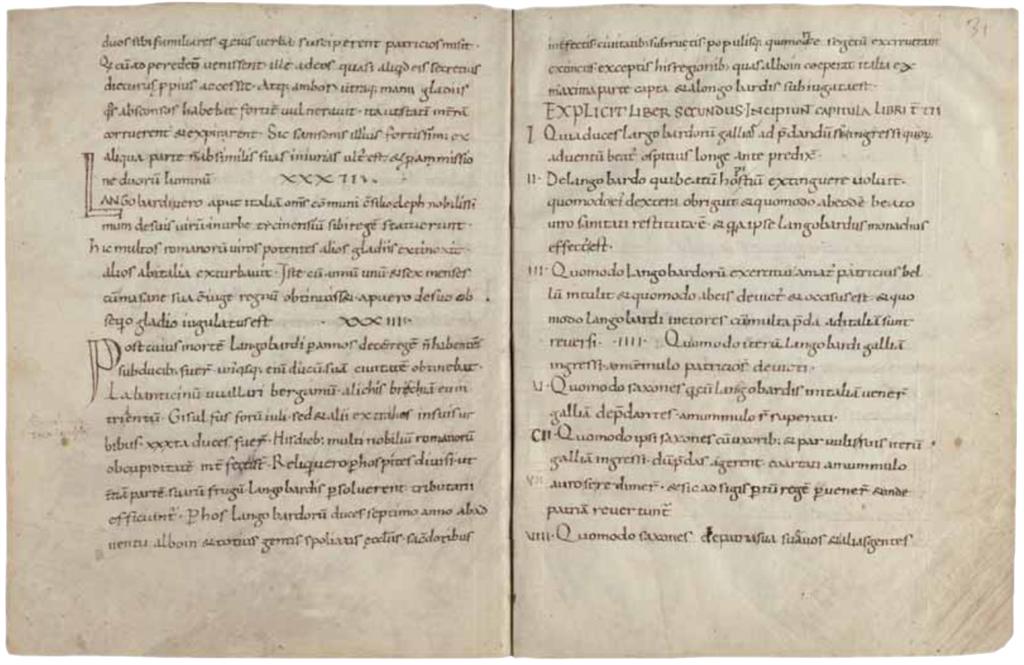 duos sibi familiares q̄ eius uerba susciperent patricios misit ·
Qi cū ad peredeū uenissent ille ad eos quasi aliqd eis secretius
dicturus ppius accessit · Atq; ambor utraq; manu gladiis
absconsos habebat fortit uulnerauit · ita ut statī
corruerent & expirarent · Sic sansonis illius fortissimi ex
aliqua parte n̄ absimilis suas iniurias ult est · & p amissio
ne duorū luminū XXXIIV ·
LANGobardi uero aput italiā oms cōmuni c̄silio cleph nobilissi
mum de suis uirū in urbe ticinensiū sibi regē statuerunt ·
hic multos romanorū uiros potentes alios gladiis extinxit ·
alios ab italia exturbauit · Iste cū annū unū & sex menses
cū masane sua c̄iuge regnū obtinuisset · a puero de suo ob
seqio gladio iugulatus est · XXXIII ·
Post cuius mortē Langobardi p annos decē regē n̄ habentes
sub ducib; fuer · uniqsq; enī ducū suā ciuitatē obtinebat ·
Zaban ticinū uuallari bergamū · alichis brexiā euin
trientū · Gisulfus forū iuli · sed & alii extra hos in suis ur
bibus · xxxta duces fuer · His dieb; multi nobiliū romanorū
ob cupiditatē int̄fecti st · Reliqui uero p hospites diuisi · ut
tertiā partē suarū frugū Langobardis psoluerent · tributarii
efficiunt · P hos Langobardorū duces septimo anno ab ad
uentu alboin & totius gentis spoliatis ecclesiis · sacdotibus
31
int̄fectis ciuitatib; subrutis populisq; qui more segetū excreuerant
extinctis · exceptis his regionib; quas alboin coeperat italia ex
maxima parte capta & a langobardis subiugata est ·
EXPLICIT LIBER SECUNDUS · INCIPIUNT CAPITULA LIBRI TERTII
I Quia duces Langobardorū gallias ad pdandū sint ingressi quor
aduentū beat ospitius longe ante predixit ·
II · De langobardo qui beatū hospitiū extinguere uoluit ·
quomodo ei dextera obriguit & quomodo ab eodē beato
uiro sanitati restituta ē · & q ipse langobardus monachus
effectus est ·
III · Quomodo Langobardorū exercitui amat patricius bel
lū intulit & quomodo ab eis deuict & occisus est · & quo
modo langobardi uictores cū multa pda ad italiā sunt
reuersi · IIII · Quomodo iterū langobardi galliā
ingressi a mummulo patricio st deuicti ·
VI · Quomodo saxones q cū langobardis in italiā uener
galliā depdantes a mummulo st superati ·
CII · Quomodo ipsi saxones cū uxorib; & paruulis suis iterū
galliā ingressi · dū pdas agerent · coartati a mummulo
VII auro se redimer · & sic ad sigisptū regē puener · & inde
patriā reuertunt
VIII · Quomodo saxones de patria sua suauos & alias gentes